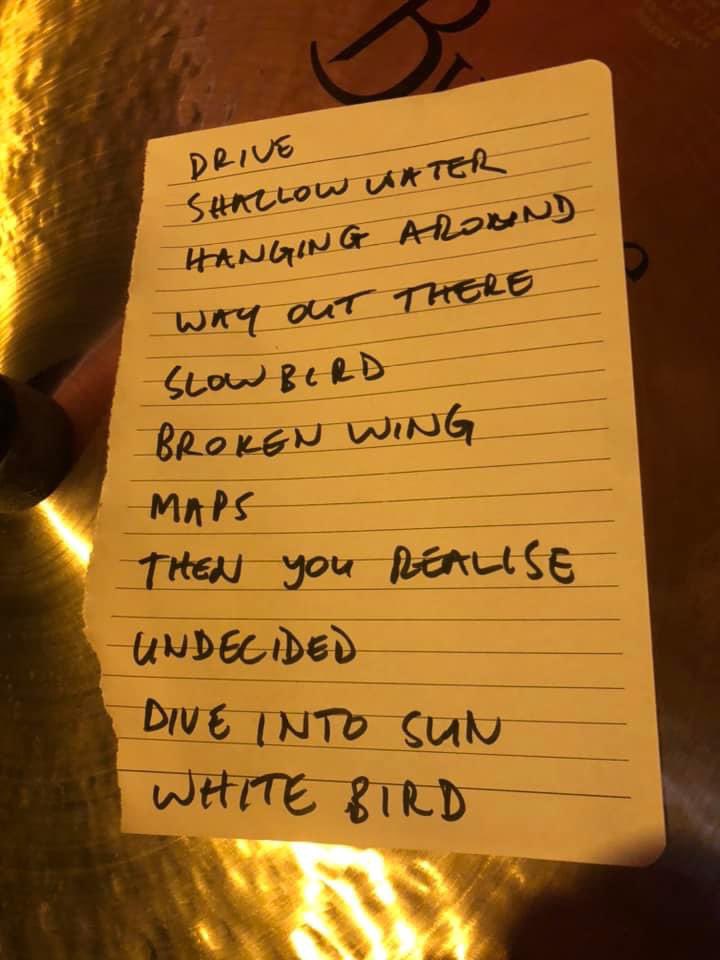 DRIVE
SHALLOW WATER
HANGING AROUND
WAY OUT THERE
SLOW BIRD
BROKEN WING
MAPS
THEN YOU REALISE
UNDECIDED
DIVE INTO SUN
WHITE BIRD